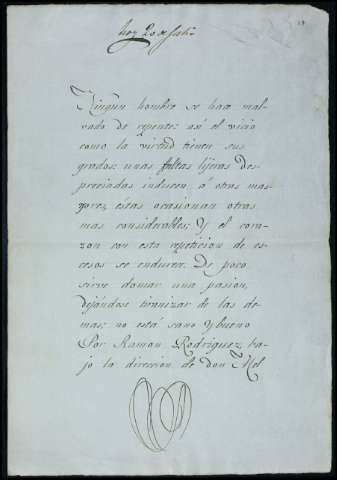 hoy 20 de Jul.
Ningun hombre se hace mal-
vado de repente: así el vicio
como la virtud tienen sus
grados: unas faltas lijeras des-
preciadas inducen, á otras ma-
yores, éstas ocasionan otras
mas considerables; Y el cora-
zon con esta repeticion de es-
cesos se endurece. De poco
sirve domar una pasion,
dejándose tiranizar de las de-
mas: no está sano y bueno
Por Ramon Rodriguez, ba-
jo la direccion de don Mel